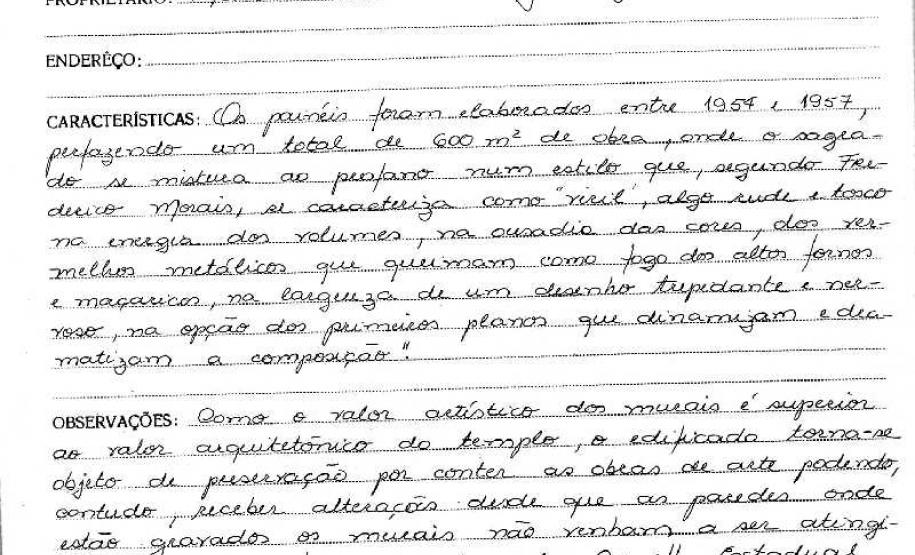 PROPRIETÁRIO:
ENDERÊÇO:
CARACTERÍSTICAS: Os painéis foram elaborados entre 1954 e 1957,
perfazendo um total de 600 m² de obra, onde o sagra-
do se mistura ao profano num estilo que, segundo Fre-
derico Morais, se caracteriza como "viril", algo rude e tosco
na energia dos volumes, na ousadia das cores, dos ver-
melhos metálicos que queimam como fogo dos altos fornos
e maçaricos, na largueza de um desenho trepidante e ner-
voso, na opção dos primeiros planos que dinamizam e dra-
matizam a composição".
OBSERVAÇÕES: Como o valor artístico dos murais é superior
ao valor arquitetônico do templo, o edificado torna-se
objeto de preservação por conter as obras de arte podendo,
contudo, receber alterações desde que as paredes onde
estão gravados os murais não venham a ser atingi-
Estadual